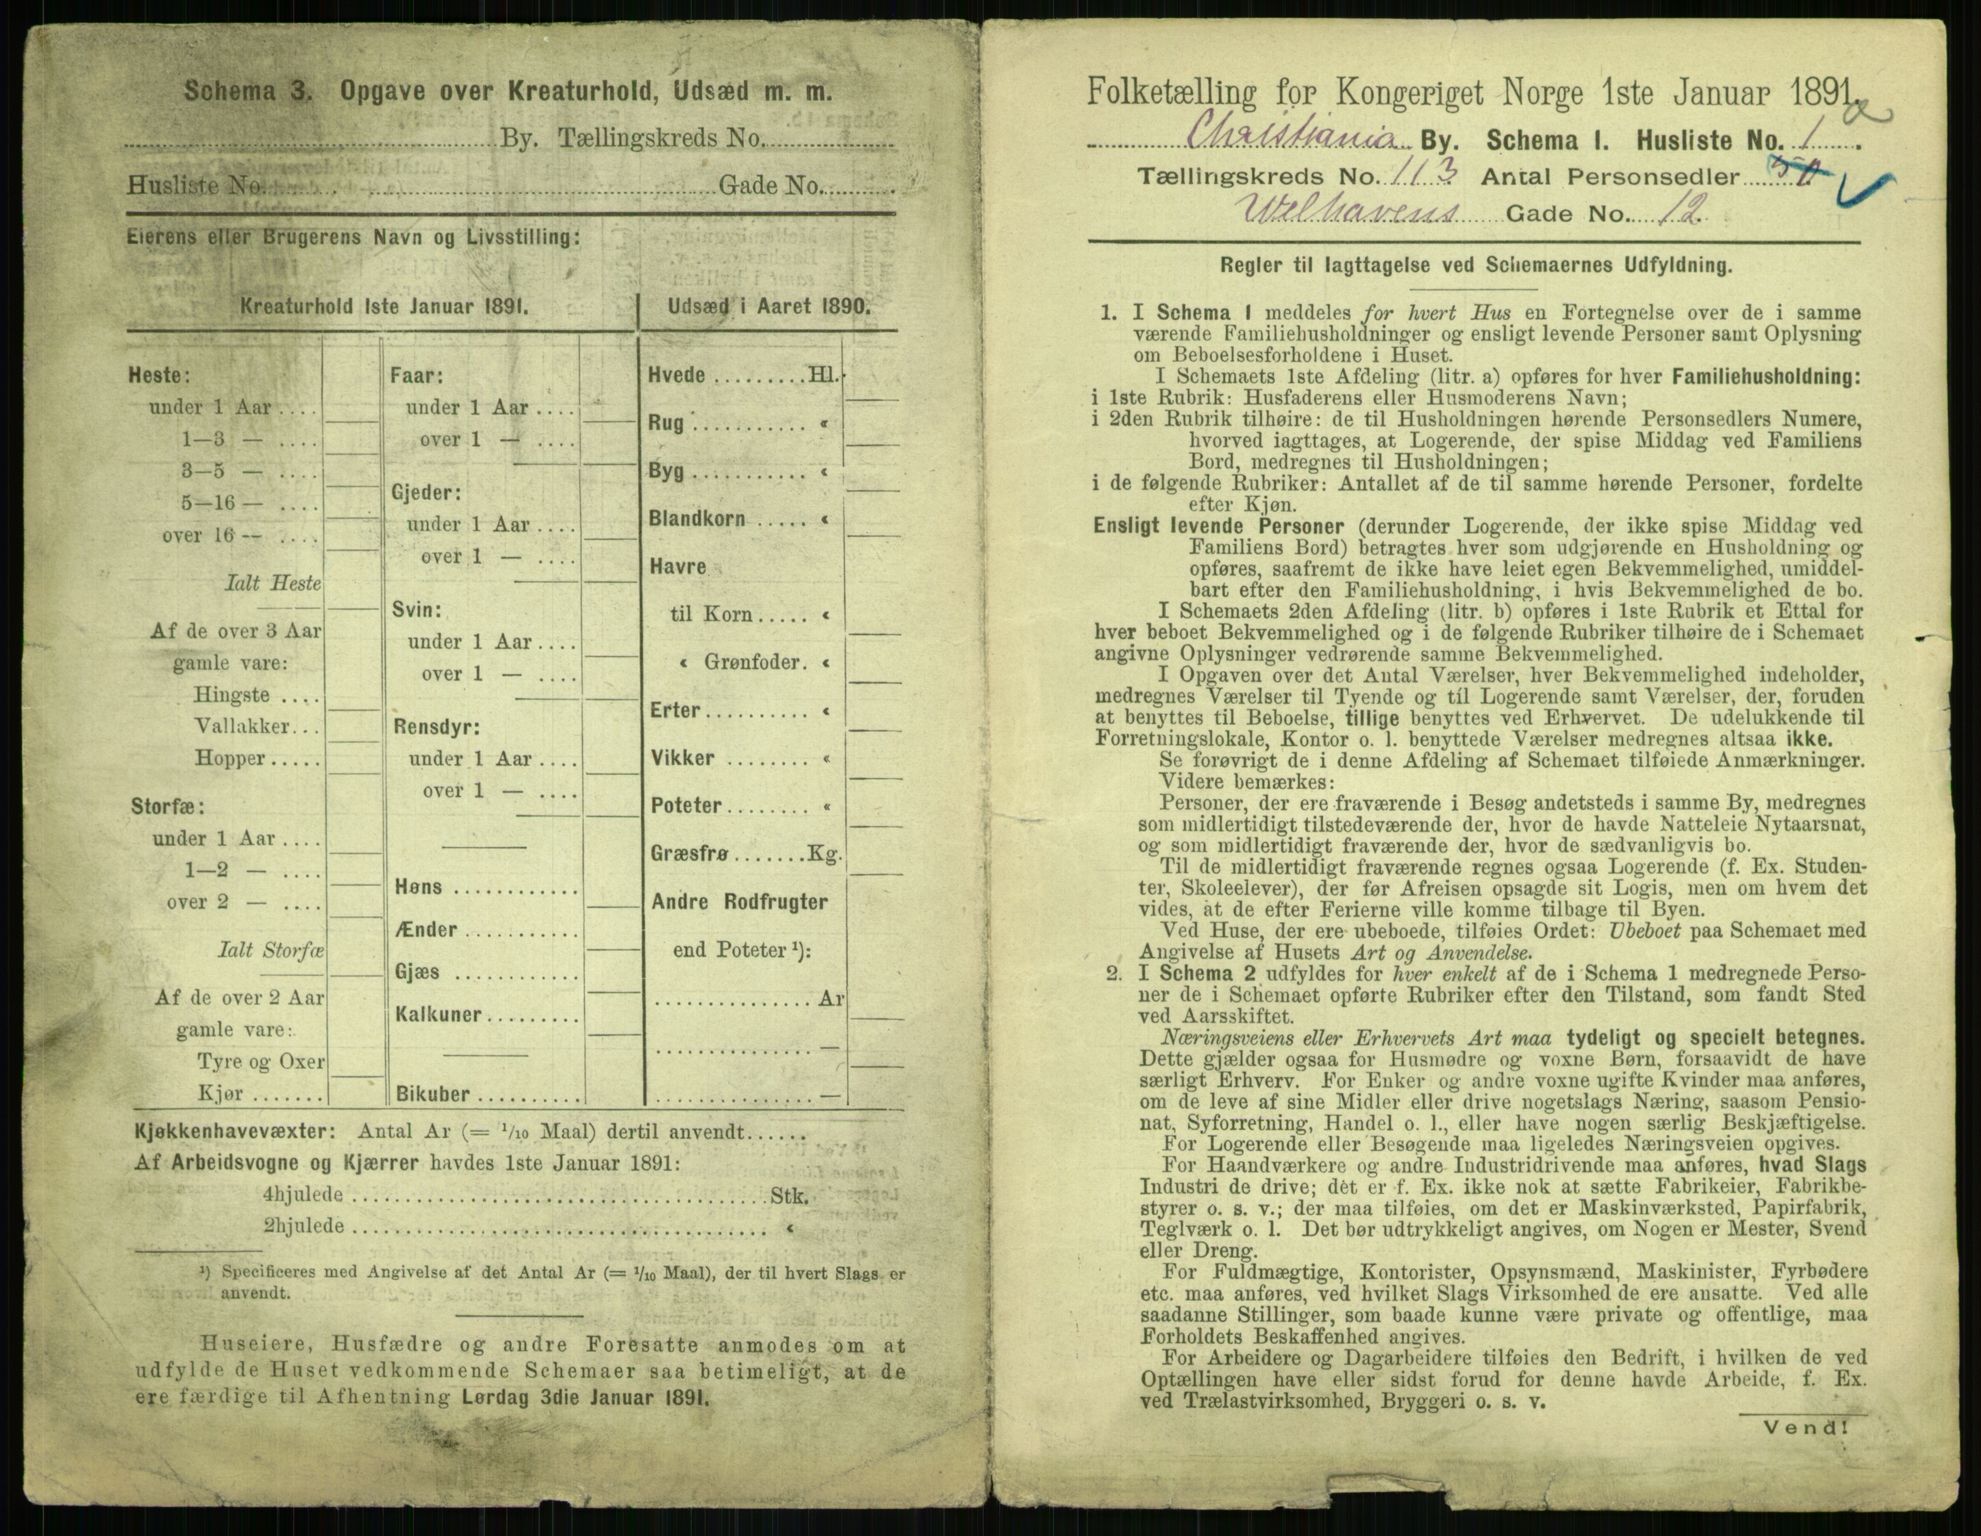 Schema 3. Opgave over Kreaturhold, Udsæd m. m.
By. Tællingskreds No.
Husliste No. Gade No.
Eierens eller Brugerens Navn og Livsstilling:
Kreaturhold 1ste Januar 1891.
Udsæd i Aaret 1890.
Heste:
under 1 Aar ....
1—3 — ....
3—5 — ....
5—16 — ....
over 16 — ....
Ialt Heste
Af de over 3 Aar
gamle vare:
Hingste ....
Vallakker...
Hopper.....
Storfæ:
under 1 Aar ....
1—2 — ....
over 2 — ....
Ialt Storfæ
Af de over 2 Aar
gamle vare:
Tyre og Oxer
Kjør .......
Faar:
under 1 Aar ....
over 1 — ....
Gjeder:
under 1 Aar ....
over 1 — ....
Svin:
under 1 Aar ....
over 1 — ....
Rensdyr:
under 1 Aar ....
over 1 — ....
Høns ............
Ænder ...........
Gjæs ............
Kalkuner.........
Bikuber ..........
Hvede .........Hl.
Rug ........... «
Byg ........... «
Blandkorn ..... «
Havre
til Korn..... «
« Grønfoder. «
Erter.......... «
Vikker ........ «
Poteter........ «
Græsfrø.......Kg.
Andre Rodfrugter
end Poteter ¹):
............... Ar
............... —
............... —
Kjøkkenhavevæxter: Antal Ar (= 1/10 Maal) dertil anvendt......
Af Arbeidsvogne og Kjærrer havdes 1ste Januar 1891:
4hjulede ........................................ Stk.
2hjulede ........................................ «
¹) Specificeres med Angivelse af det Antal Ar (= 1/10 Maal), der til hvert Slags er
anvendt.
Huseiere, Husfædre og andre Foresatte anmodes om at
udfylde de Huset vedkommende Schemaer saa betimeligt, at de
ere færdige til Afhentning Lørdag 3die Januar 1891.
Folketælling for Kongeriget Norge 1ste Januar 1891.
a
Christiania By. Schema I. Husliste No. 1
Tællingskreds No. 113 Antal Personsedler 50
Welhavens Gade No. 12.
Regler til Iagttagelse ved Schemaernes Udfyldning.
1. I Schema 1 meddeles for hvert Hus en Fortegnelse over de i samme
værende Familiehusholdninger og ensligt levende Personer samt Oplysning
om Beboelsesforholdene i Huset.
I Schemaets 1ste Afdeling (litr. a) opføres for hver Familiehusholdning:
i 1ste Rubrik: Husfaderens eller Husmoderens Navn;
i 2den Rubrik tilhøire: de til Husholdningen hørende Personsedlers Numere,
hvorved iagttages, at Logerende, der spise Middag ved Familiens
Bord, medregnes til Husholdningen;
i de følgende Rubriker: Antallet af de til samme hørende Personer, fordelte
efter Kjøn.
Ensligt levende Personer (derunder Logerende, der ikke spise Middag ved
Familiens Bord) betragtes hver som udgjørende en Husholdning og
opføres, saafremt de ikke have leiet egen Bekvemmelighed, umiddel-
bart efter den Familiehusholdning, i hvis Bekvemmelighed de bo.
I Schemaets 2den Afdeling (litr. b) opføres i 1ste Rubrik et Ettal for
hver beboet Bekvemmelighed og i de følgende Rubriker tilhøire de i Schemaet
angivne Oplysninger vedrørende samme Bekvemmelighed.
I Opgaven over det Antal Værelser, hver Bekvemmelighed indeholder,
medregnes Værelser til Tyende og til Logerende samt Værelser, der, foruden
at benyttes til Beboelse, tillige benyttes ved Erhvervet. De udelukkende til
Forretningslokale, Kontor o. l. benyttede Værelser medregnes altsaa ikke.
Se forøvrigt de i denne Afdeling af Schemaet tilføiede Anmærkninger.
Videre bemærkes:
Personer, der ere fraværende i Besøg andetsteds i samme By, medregnes
som midlertidigt tilstedeværende der, hvor de havde Natteleie Nytaarsnat,
og som midlertidigt fraværende der, hvor de sædvanligvis bo.
Til de midlertidigt fraværende regnes ogsaa Logerende (f. Ex. Studen-
ter, Skoleelever), der før Afreisen opsagde sit Logis, men om hvem det
vides, at de efter Ferierne ville komme tilbage til Byen.
Ved Huse, der ere ubeboede, tilføies Ordet: Ubeboet paa Schemaet med
Angivelse af Husets Art og Anvendelse.
2. I Schema 2 udfyldes for hver enkelt af de i Schema 1 medregnede Perso-
ner de i Schemaet opførte Rubriker efter den Tilstand, som fandt Sted
ved Aarsskiftet.
Næringsveiens eller Erhvervets Art maa tydeligt og specielt betegnes.
Dette gjælder ogsaa for Husmødre og voxne Børn, forsaavidt de have
særligt Erhverv. For Enker og andre voxne ugifte Kvinder maa anføres,
om de leve af sine Midler eller drive nogetslags Næring, saasom Pensio-
nat, Syforretning, Handel o. l., eller have nogen særlig Beskjæftigelse.
For Logerende eller Besøgende maa ligeledes Næringsveien opgives.
For Haandværkere og andre Industridrivende maa anføres, hvad Slags
Industri de drive; det er f. Ex. ikke nok at sætte Fabrikeier, Fabrikbe-
styrer o. s. v.; der maa tilføies, om det er Maskinværksted, Papirfabrik,
Teglværk o. l. Det bør udtrykkeligt angives, om Nogen er Mester, Svend
eller Dreng.
For Fuldmægtige, Kontorister, Opsynsmænd, Maskinister, Fyrbødere
etc. maa anføres, ved hvilket Slags Virksomhed de ere ansatte. Ved alle
saadanne Stillinger, som baade kunne være private og offentlige, maa
Forholdets Beskaffenhed angives.
For Arbeidere og Dagarbeidere tilføies den Bedrift, i hvilken de ved
Optællingen have eller sidst forud for denne havde Arbeide, f. Ex.
ved Trælastvirksomhed, Bryggeri o. s. v.
Vend!